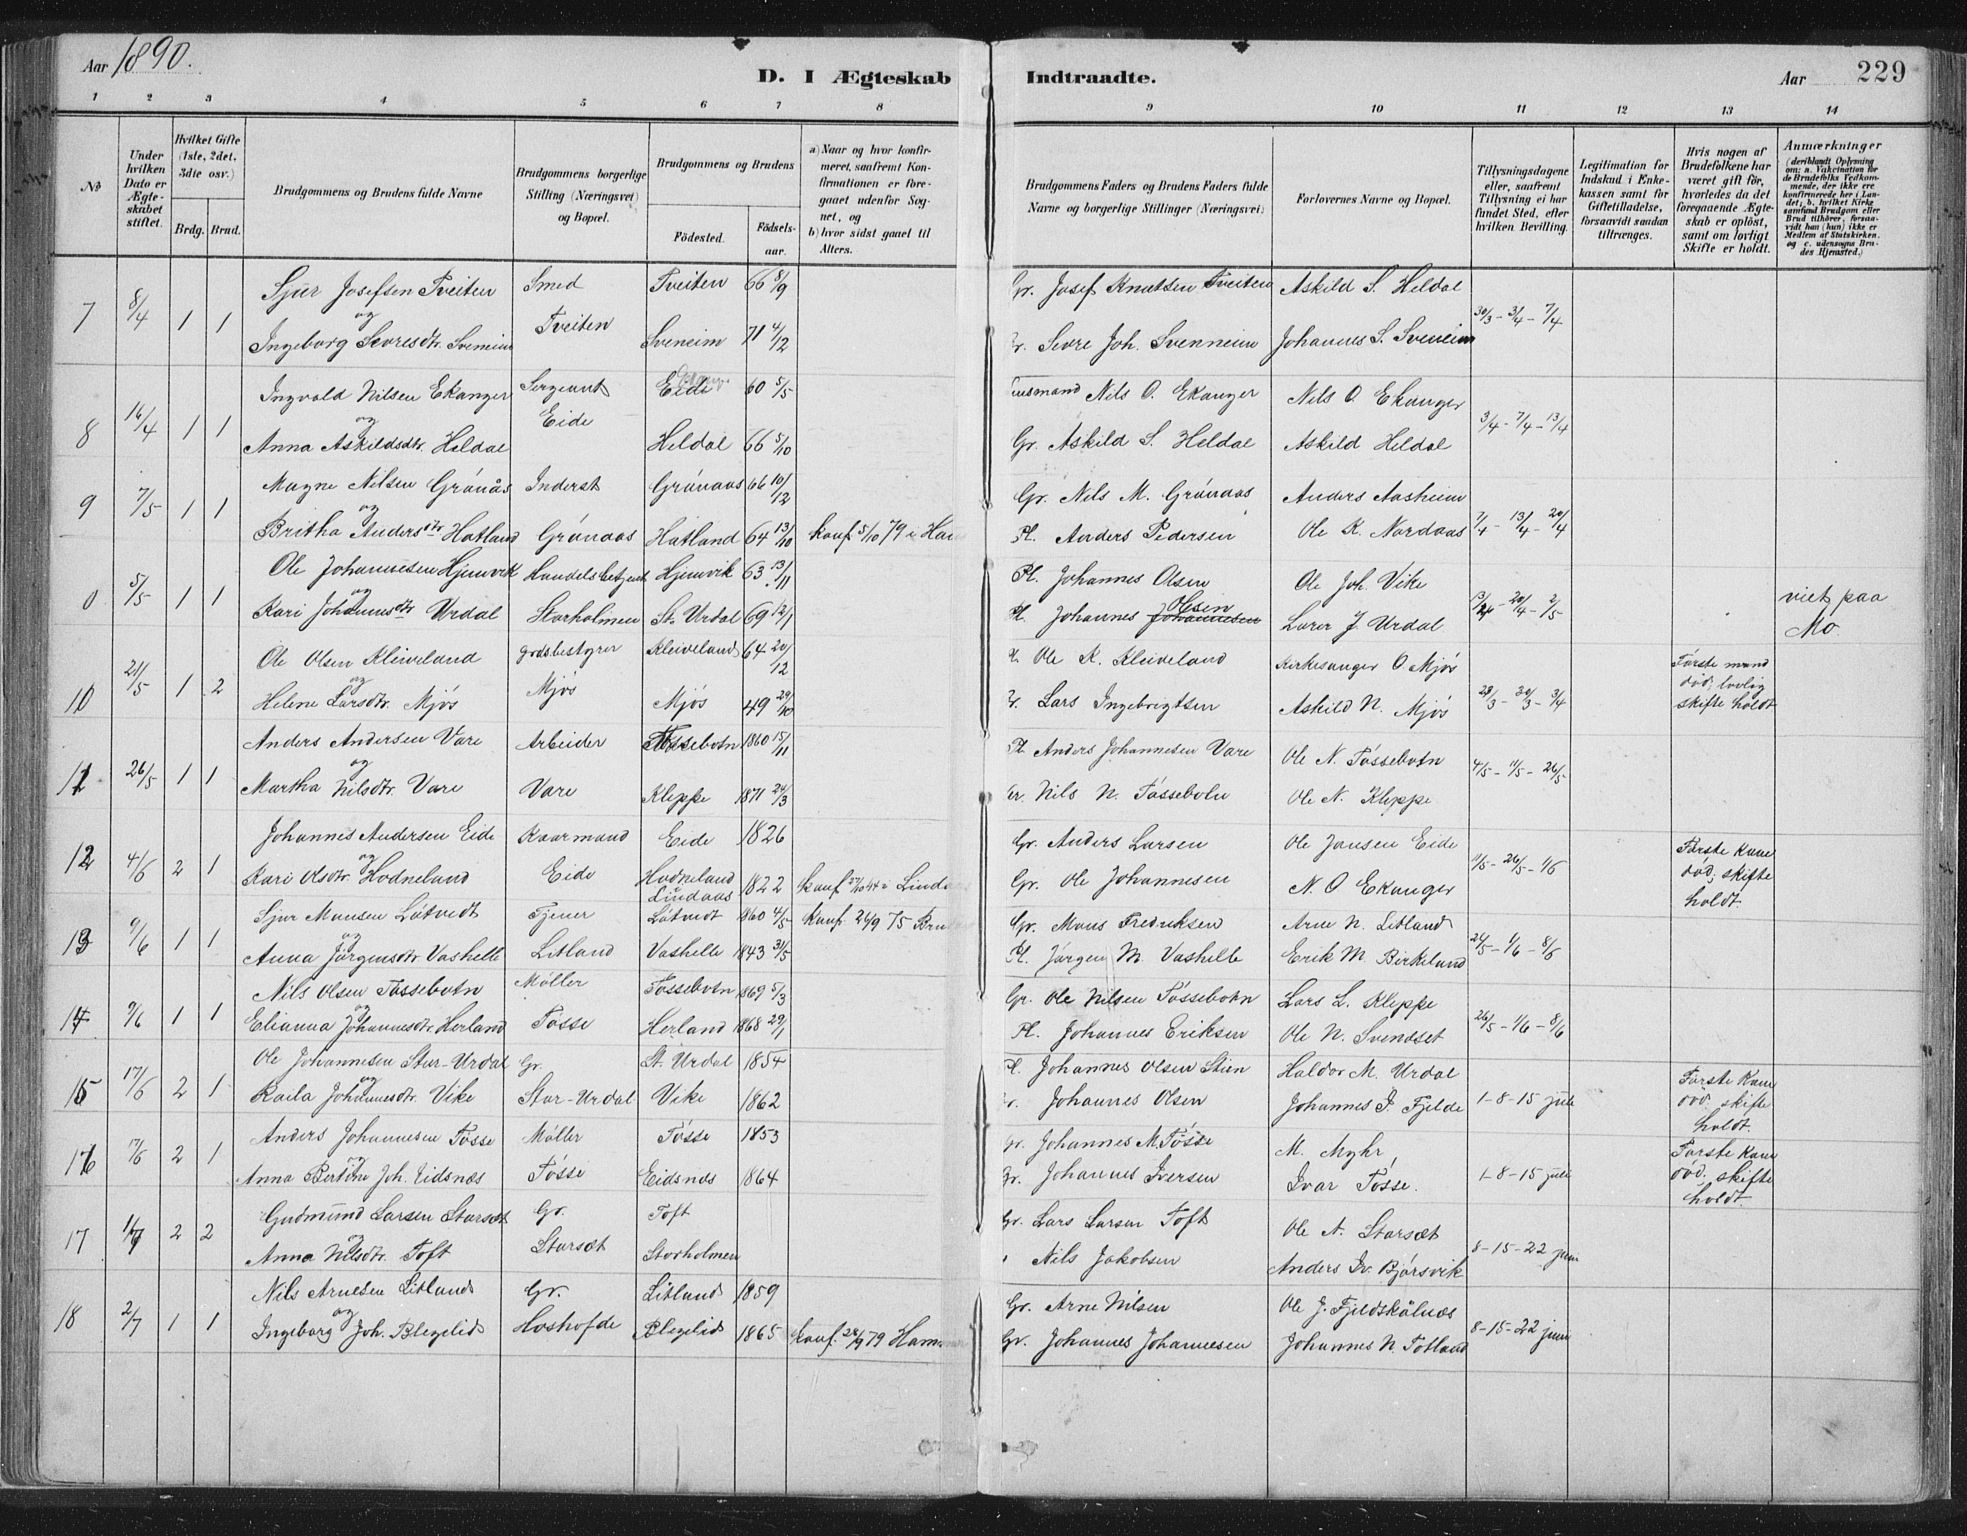 Aar 1890.
D. I Ægteskab Indtraadte.
Aar
229
1 2 3 4 5 6 7 8 9 10 11 12 13 14
No
Under hvilken Dato er Ægteskabet stiftet.
Hvilket Gifte (1ste, 2det, 3die osv.)
Brdg. Brud.
Brudgommens og Brudens fulde Navne
Brudgommens borgerlige Stilling (Næringsvei) og Bopæl.
Brudgommens og Brudens
Födested. Födselsaar.
a) Naar og hvor konfirmeret, saafremt Konfirmationen er foregaaet udenfor Sognet, og
b) hvor sidst gaaet til Alters.
Brudgommens Faders og Brudens Faders fulde Navne og borgerlige Stillinger (Næringsvei)
Forlovernes Navne og Bopæl.
Tillysningsdagene eller, saafremt Tillysning ei har fundet Sted, efter hvilken Bevilling.
Legitimation for Indskud i Enkekassen samt for Giftetilladelse, forsaavidt saadan tiltrænges.
Hvis nogen af Brudefolkene har været gift för, hvorledes da det foregaaende Ægteskab er oplöst, samt om lovligt Skifte er holdt.
Anmærkninger
(deriblandt Oplysning om: a. Vakcination for de Brudefolks Vedkommende, der ikke ere konfirmerede her i Landet; b. hvilket Kirkesamfund Brudgom eller Brud tilhörer, forsaavidt han (hun) ikke er Medlem af Statskirken. og c. udensogns Brudes Hjemsted.)
7 8/4 1 1 Sjur Josefsen Tveiten Smed Tveiten 66 8/9 Gr. Josef Knutsen Tveiten Askild S. Heldal 30/3 - 3/4 - 7/4
og Tveiten
Ingeborg Sevresdtr. Svenheim Sveneim 71 4/12 Sevre Joh. Svenneim Johannes S. Sveneim
8 16/4 1 1 Ingvald Nilsen Ekanger Sergeant Eide 60 5/5 Nils O. Ekanger Nils O Ekanger 3/4 - 7/4 - 13/4
og Eide
Anna Askildsdtr. Heldal Heldal 66 5/10 Gr. Askild S. Heldal Askild Heldal
9 7/5 1 1 Magne Nilsen Grønås Inderst Grønaas 66 10/12 Gr. Nils M. Grønaas Anders Aasheim 7/4 - 13/4 - 20/4
og
Britha Andersdtr Hatland Grønaas Hatland 64 13/10 konf. 5/10 79 i Ham Pl. Anders Pedersen Ole K. Nordaas
0 5/5 1 1 Ole Johannesen Hjemvik Handelsbetjent Hjemvik 63 13/11 Pl. Johannes Olsen Ole Joh. Vike 13/4 - 20/4 - 2/5
og
Kari Johannesdtr Urdal Storholmen St. Urdal 69 12/1 Pl. Johannes Johannesen Olsen Larer J Urdal viet paa Mo.
10 21/5 1 2 Ole Olsen Kleiveland gardsbestyrer Kleiveland 64 20/12 Ole K. Kleiveland Kirkesanger O. Mjøs 23/3 - 30/3 - 3/4 Første mand død, lovlig skifte holdt
og Mjøs
Helene Larsdtr. Mjøs Mjøs 49 29/10 Lars Ingebrigtsen Askild N. Mjøs
11 26/5 1 1 Anders Andersen Vare Arbeider Fossebotn 1860 15/11 Pl. Anders Johannesen Vare Ole N. Fossebotn 4/5 - 11/5 - 26/5
og
Martha Nilsdtr. Vare Vare Kleppe 1871 24/3 Nils N. Fossebotn Ole N. Kleppe
12 4/6 2 1 Johannes Andersen Eide Kaarmand Eide 1826 Gr. Anders Larsen Ole Jansen Eide 11/5 - 26/5 - 1/6 Første Kone død, skifte holdt.
og
Kari Olsdtr. Hodneland Eide Hodneland Lindaas 1822 Gr. Ole Johannesen N. O Ekanger
13 9/6 1 1 Sjur Monsen Løtvedt Tjener Løtvedt 1860 4/5 konf. 26/9 75 Gr. Mons Fredriksen Arne N. Litland 26/5 - 1/6 - 8/6
og
Anna Jørgensdtr. Vashelle Litland Vashelle 1843 31/5 Pl. Jørgen M. Vashelle Erik M Birkeland
14 9/6 1 1 Nils Olsen Fossebotn Møller Fossebotn 1869 5/3 Gr. Ole Nilsen Fossebotn Lars L. Kleppe 26/5 - 1/6 - 8/6
og
Elianna Johannesdtr. Herland Fosse Herland 1868 29/1 Pl. Johannes Eriksen Ole N. Svendset
15 17/6 2 1 Ole Johannesen Stor-Urdal Gr. St. Urdal 1854 Pl. Johannes Olsen Stien Haldor M. Urdal 1-8-15 juli Første Kone død, skifte holdt.
og
Raila Johannesdtr. Vike Stor-Urdal Vike 1862 Johannes Olsen Johannes J. Fjelde
16 17/6 2 1 Anders Johannesen Fosse Møller Fosse 1853 Gr. Johannes M. Fosse M. Myhr, 1-8-15 juli Første Kone død, skifte holdt.
og
Anna Bertine Joh. Eidsnæs Fosse Eidsnæs 1864 Gr. Johannes Iversen Ivar Fosse.
17 2 2 Gudmund Larsen Storsæt Gr. Toft Gr. Lars Larsen Toft Ole A. Storsæt 8-15-22 juni
og
Anna Nilsdtr. Toft Storsæt Storholmen Nils Jakobsen Anders Iv. Bjørsvik
18 2/7 1 1 Nils Arnesen Litland Gr. Litland 1859 Gr. Arne Nilsen Ole J. Fjeldskålnæs 8-15-22 juni
og
Ingeborg Joh. Blegelid Hoshofde Blegelid 1865 konf. 79 Gr. Johannes Johannesen Johannes N. Totland